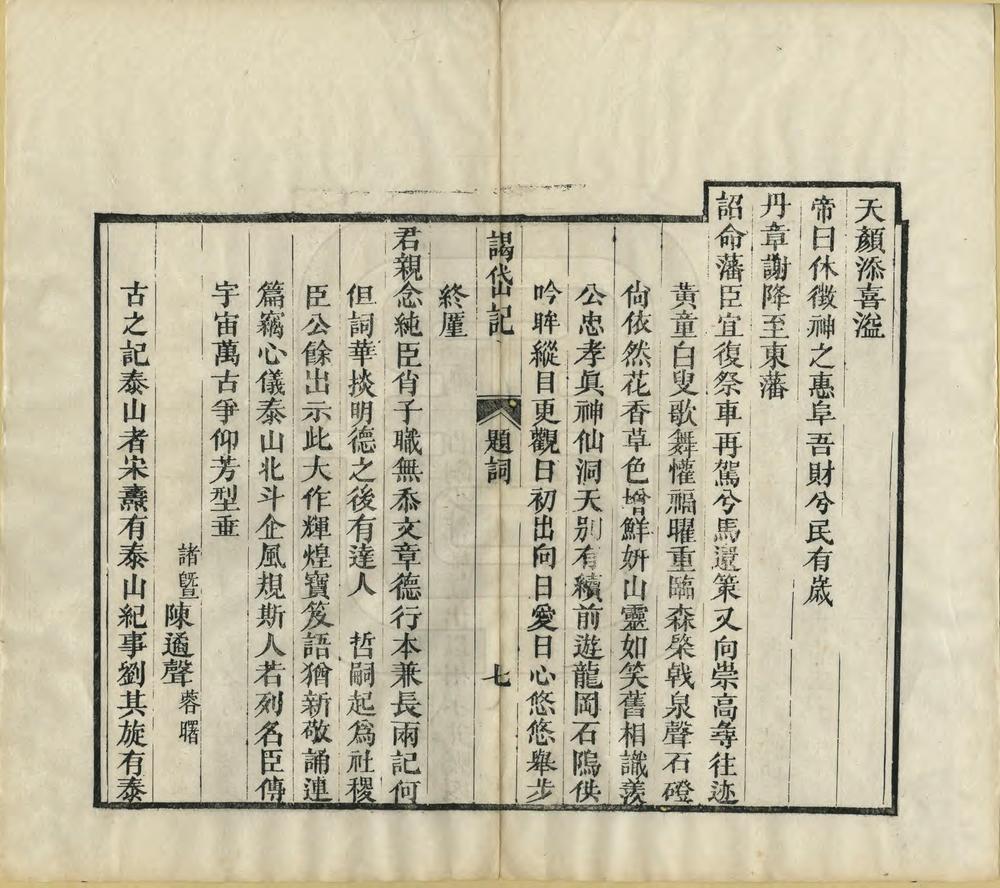 天顏添喜溢
帝曰休徵神之惠阜吾財兮民有歲
丹章謝降至東藩
詔命藩臣宜復祭車再駕兮馬還策又向崇高尋往迹
黃童白叟歌舞懽福曜重臨森棨戟泉聲石磴
尙依然花香草色增鮮姸山靈如笑舊相識羨
公忠孝眞神仙洞天別有續前遊龍岡石隝供
吟眸縱目更觀日初出向日愛日心悠悠舉步
謁岱記 題詞 七
終厪
君親念純臣肖子職無忝文章德行本兼長兩記何
但詞華掞明德之後有達人 哲嗣起爲社稷
臣公餘出示此大作輝煌寶笈語猶新敬誦連
篇竊心儀泰山北斗企風規斯人若列名臣傳
宇宙萬古爭仰芳型垂
諸曁陳遹聲蓉曙
古之記泰山者宋燾有泰山紀事劉其旋有泰